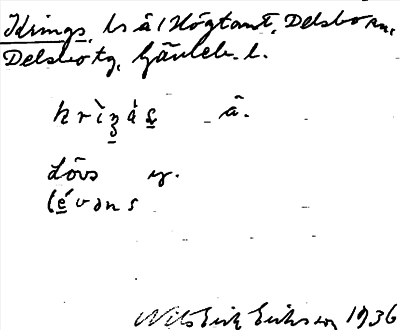 Krings, ls å (Högtomt, Delsbo sn,
Delsbo tg, Gävleb. l.
krìŋás å.
Lövs y.
lévəns
Nils Erik Eriksson 1936